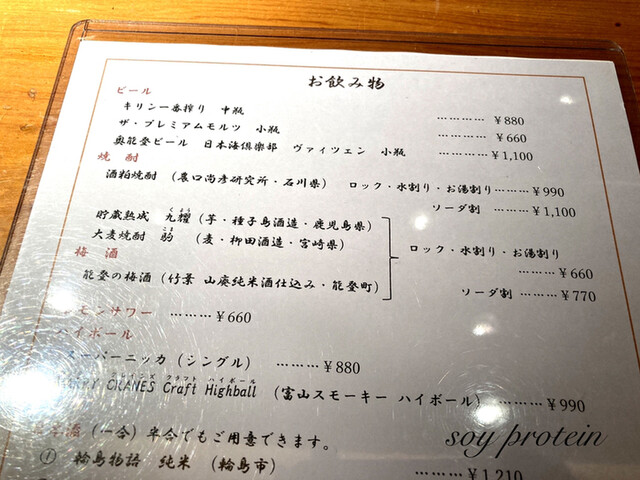 お飲み物
ビール
キリン一番搾り 中瓶 ………… ¥880
ザ・プレミアムモルツ 小瓶 ………… ¥660
奥能登ビール 日本海倶楽部 ヴァイツェン 小瓶 … ¥1,100
焼 酎
酒粕焼酎 (農口尚彦研究所・石川県) ロック・水割り・お湯割り………… ¥990
ソーダ割 ………… ¥1,100
貯蔵熟成 九耀 (芋・種子島酒造・鹿児島県)
くよう
大麦焼酎 駒 (麦・柳田酒造・宮崎県)
こま
ロック・水割り・お湯割り
………… ¥660
梅 酒
能登の梅酒 (竹葉 山廃純米酒仕込み・能登町)
ソーダ割 ………… ¥770
モンサワー ………… ¥660
ハイボール
スーパーニッカ (シングル) ………… ¥880
クレインズ クラフト ハイボール
CRANES Craft Highball (富山スモーキー ハイボール) ………… ¥990
酒 (一合) 半合でもご用意できます。
① 輪島物語 純米 (輪島市) ………… ¥1,210
soy protein